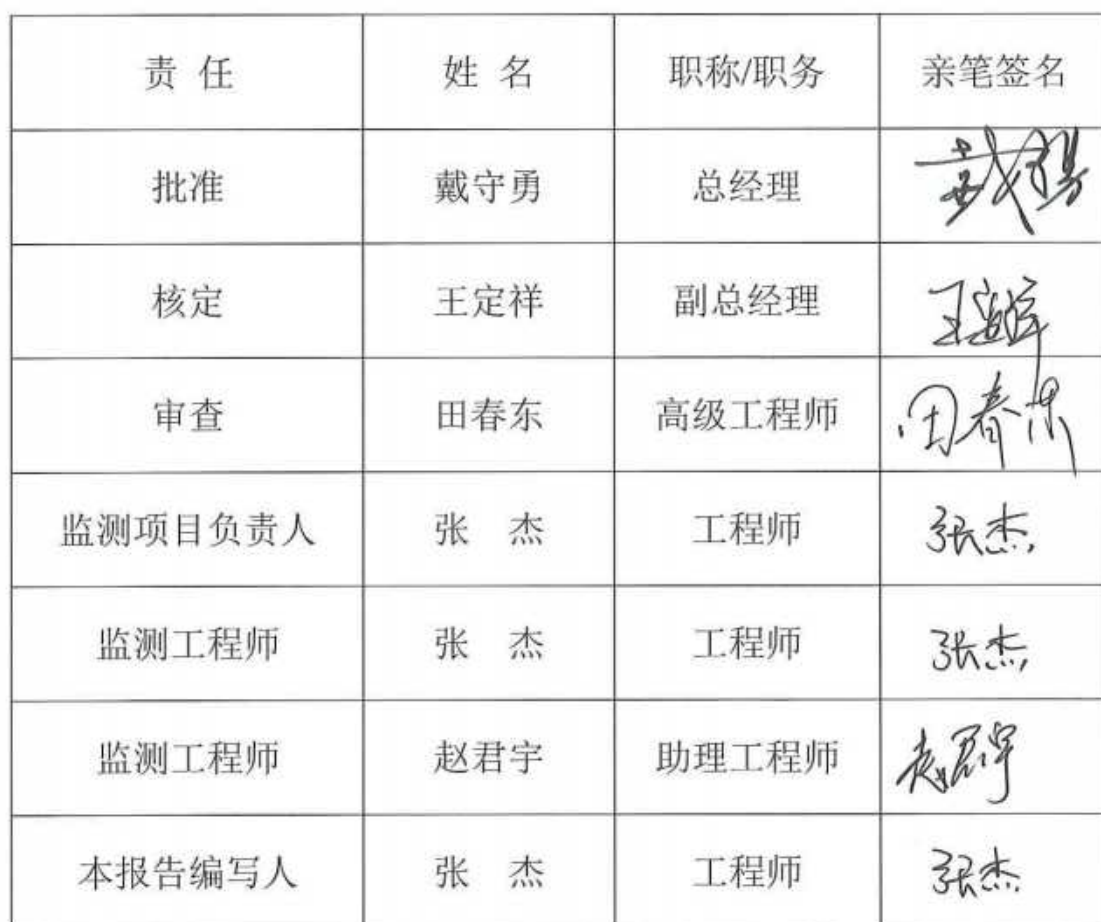 责 任 姓 名 职称/职务 亲笔签名
批准 戴守勇 总经理
核定 王定祥 副总经理
审查 田春东 高级工程师 田春东
监测项目负责人 张 杰 工程师 张杰
监测工程师 张 杰 工程师 张杰
监测工程师 赵君宇 助理工程师 赵君宇
本报告编写人 张 杰 工程师 张杰